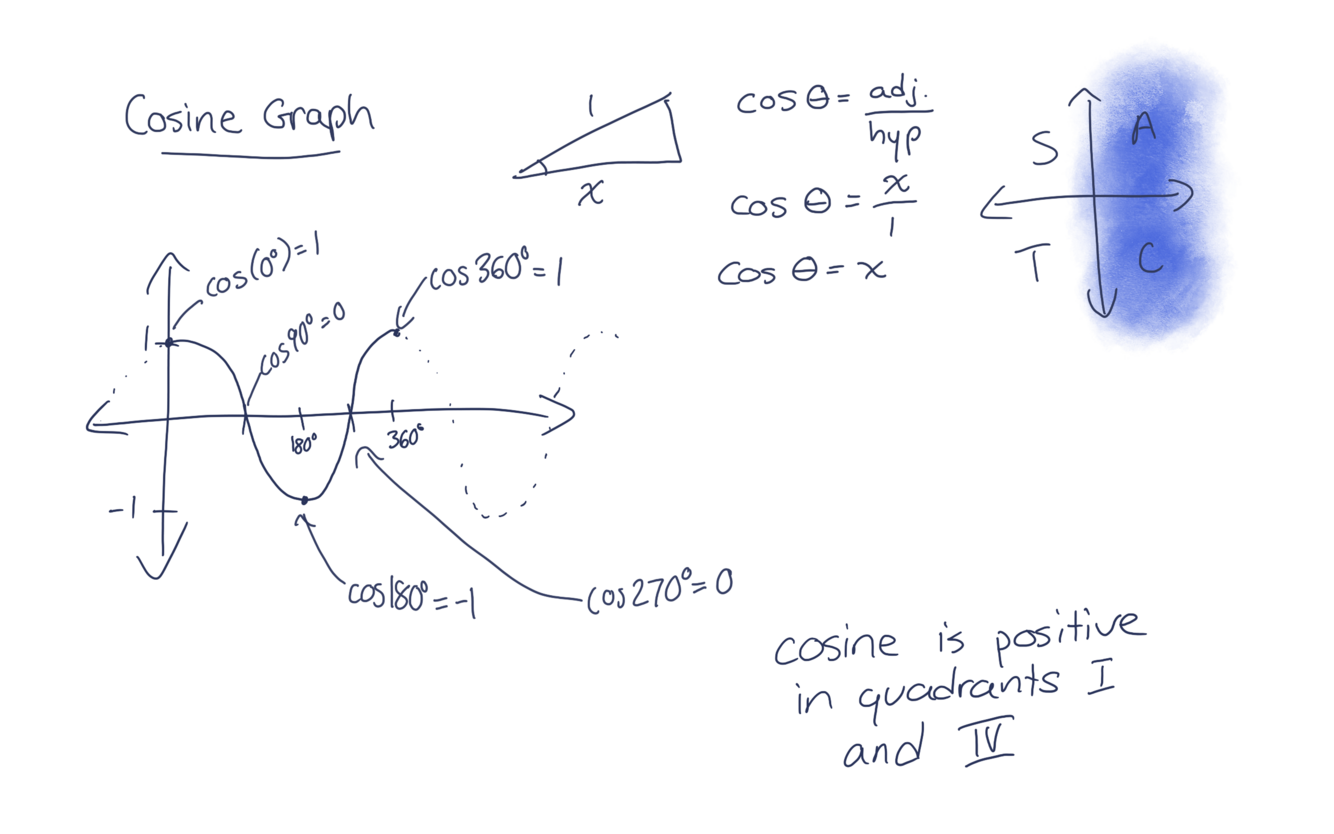 Cosine Graph
1
x
cos θ = adj. / hyp
cos θ = x / 1
cos θ = x
S A
T C
cos(0°)=1
cos90°=0
cos360°=1
1
180°
360°
-1
cos180°=-1
cos270°=0
cosine is positive
in quadrants I
and IV